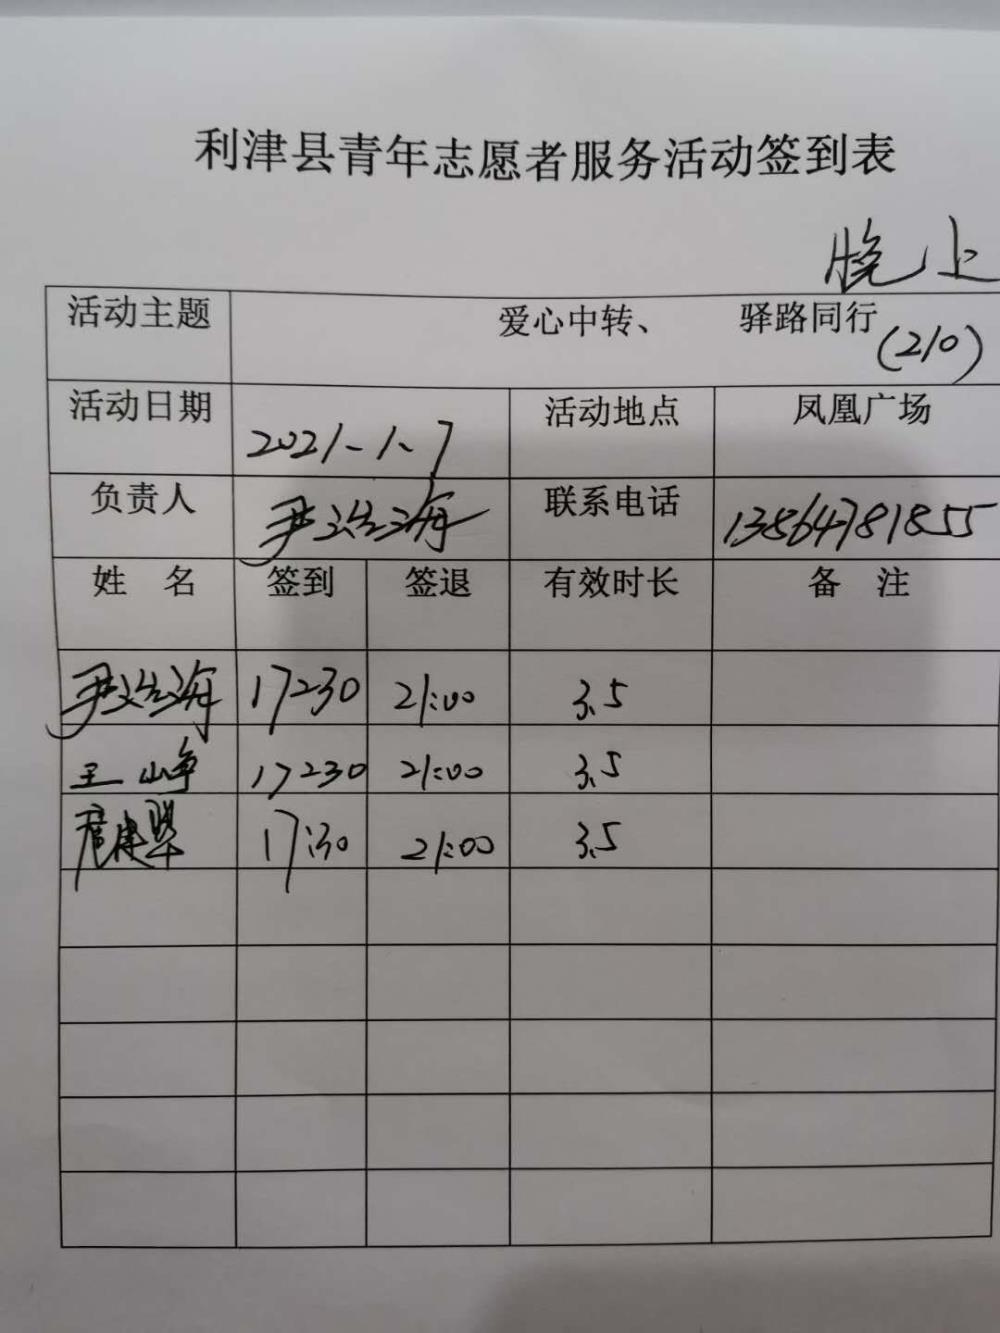 利津县青年志愿者服务活动签到表
晚上
活动主题 爱心中转、 驿路同行 (210)
活动日期 2021.1.7 活动地点 凤凰广场
负责人 尹海 联系电话 13864781855
姓 名 签到 签退 有效时长 备 注
尹海 17:30 21:00 3.5
王峥 17:30 21:00 3.5
建 17:30 21:00 3.5